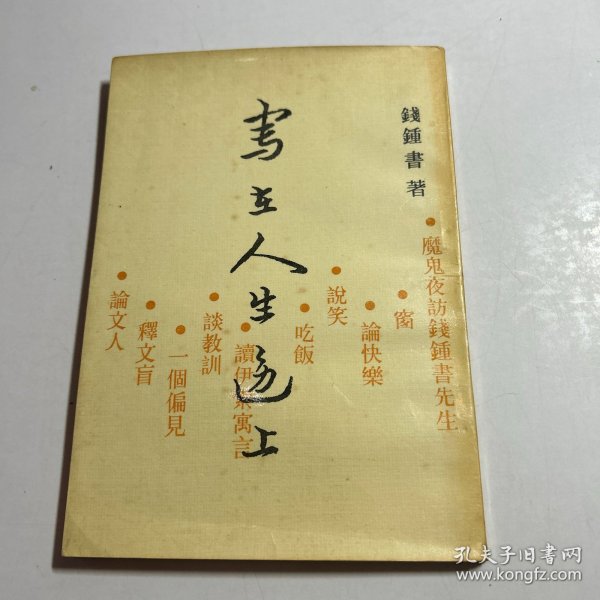 錢鍾書著
寫在人生邊上
• 魔鬼夜訪錢鍾書先生
• 窗
• 論快樂
• 說笑
• 吃飯
• 讀伊索寓言
• 談教訓
• 一個偏見
• 釋文盲
• 論文人
孔夫子旧书网
www.kongfz.com